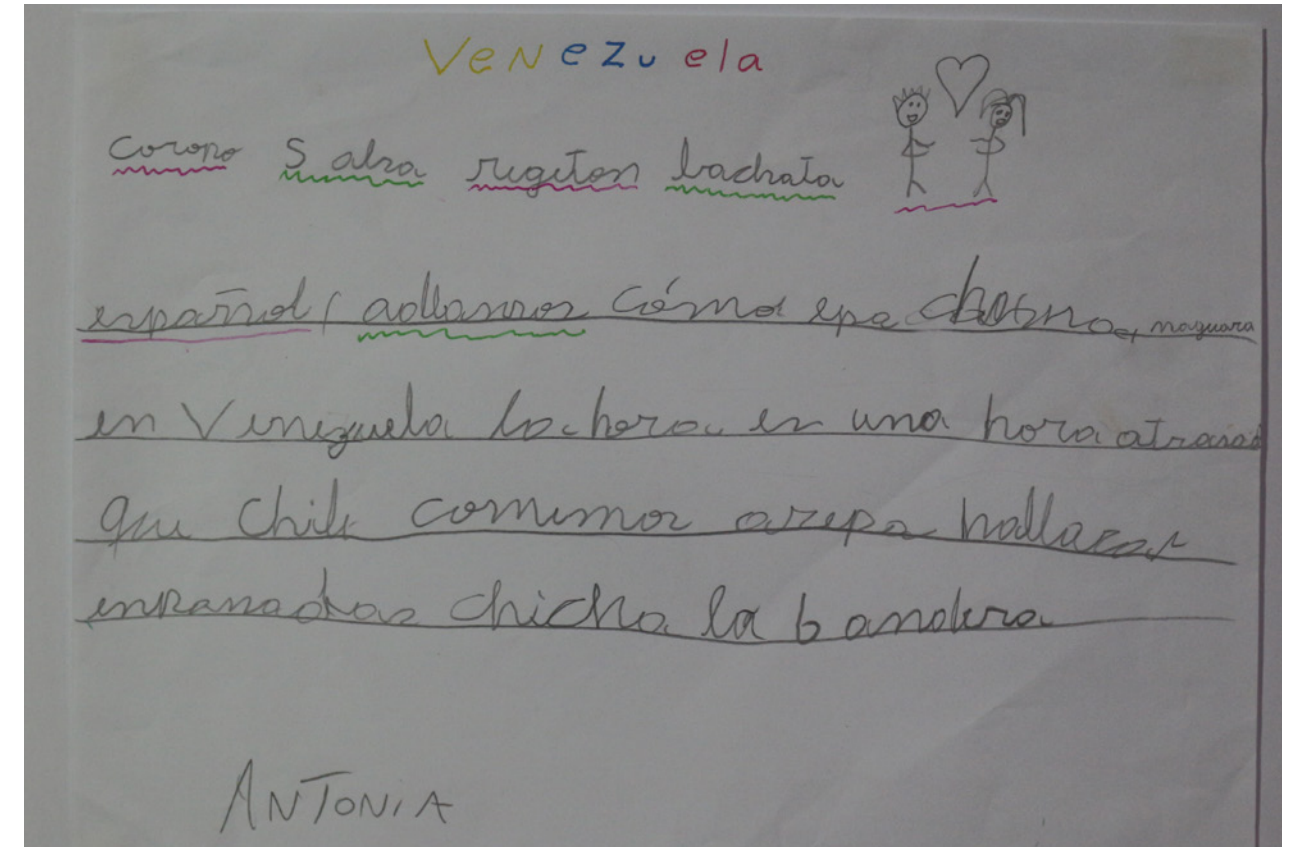 Venezuela
coropo Salsa regeton bachata
español / adllamos cómo epa chamo, naguara
en Venezuela la hora es una hora atrasad
que Chile comemos arepa hallacas
enpanadas chicha la bandera
ANTONIA